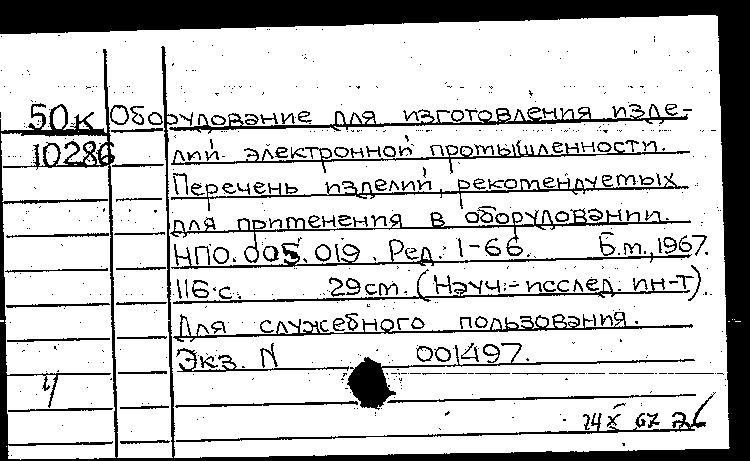 50к Оборудование для изготовления изде-
10286 лий электронной промышленности.
Перечень изделий, рекомендуемых
для применения в оборудовании.
НПО.005.019. Ред. 1-66. Б.м., 1967.
116 с. 29 cm. (Науч.-исслед. ин-т).
Для служебного пользования.
Экз. N 001497.
24 X 67